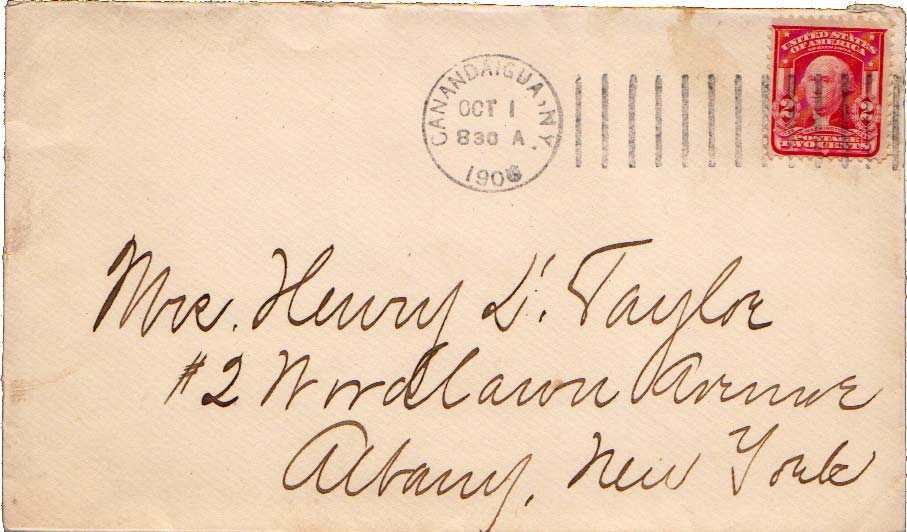 CANANDAIGUA, N.Y.
OCT 1
830 A
1906
UNITED STATES
OF AMERICA
SERIES 1902
2 2
WASHINGTON
POSTAGE
TWO CENTS
Mrs. Henry Taylor
#2 Woodlawn Avenue
Albany, New York